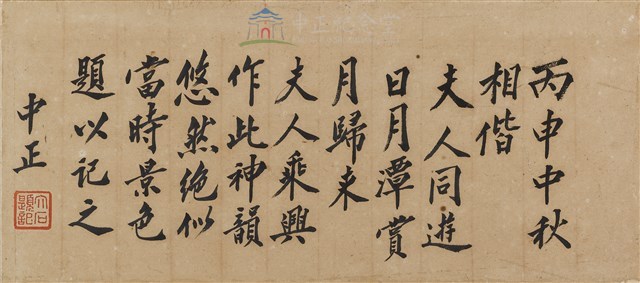 中正紀念堂
丙申中秋
相偕
夫人同遊
日月潭賞
月歸来
夫人乘興
作此神韻
悠然絶似
當時景色
題以記之
中正